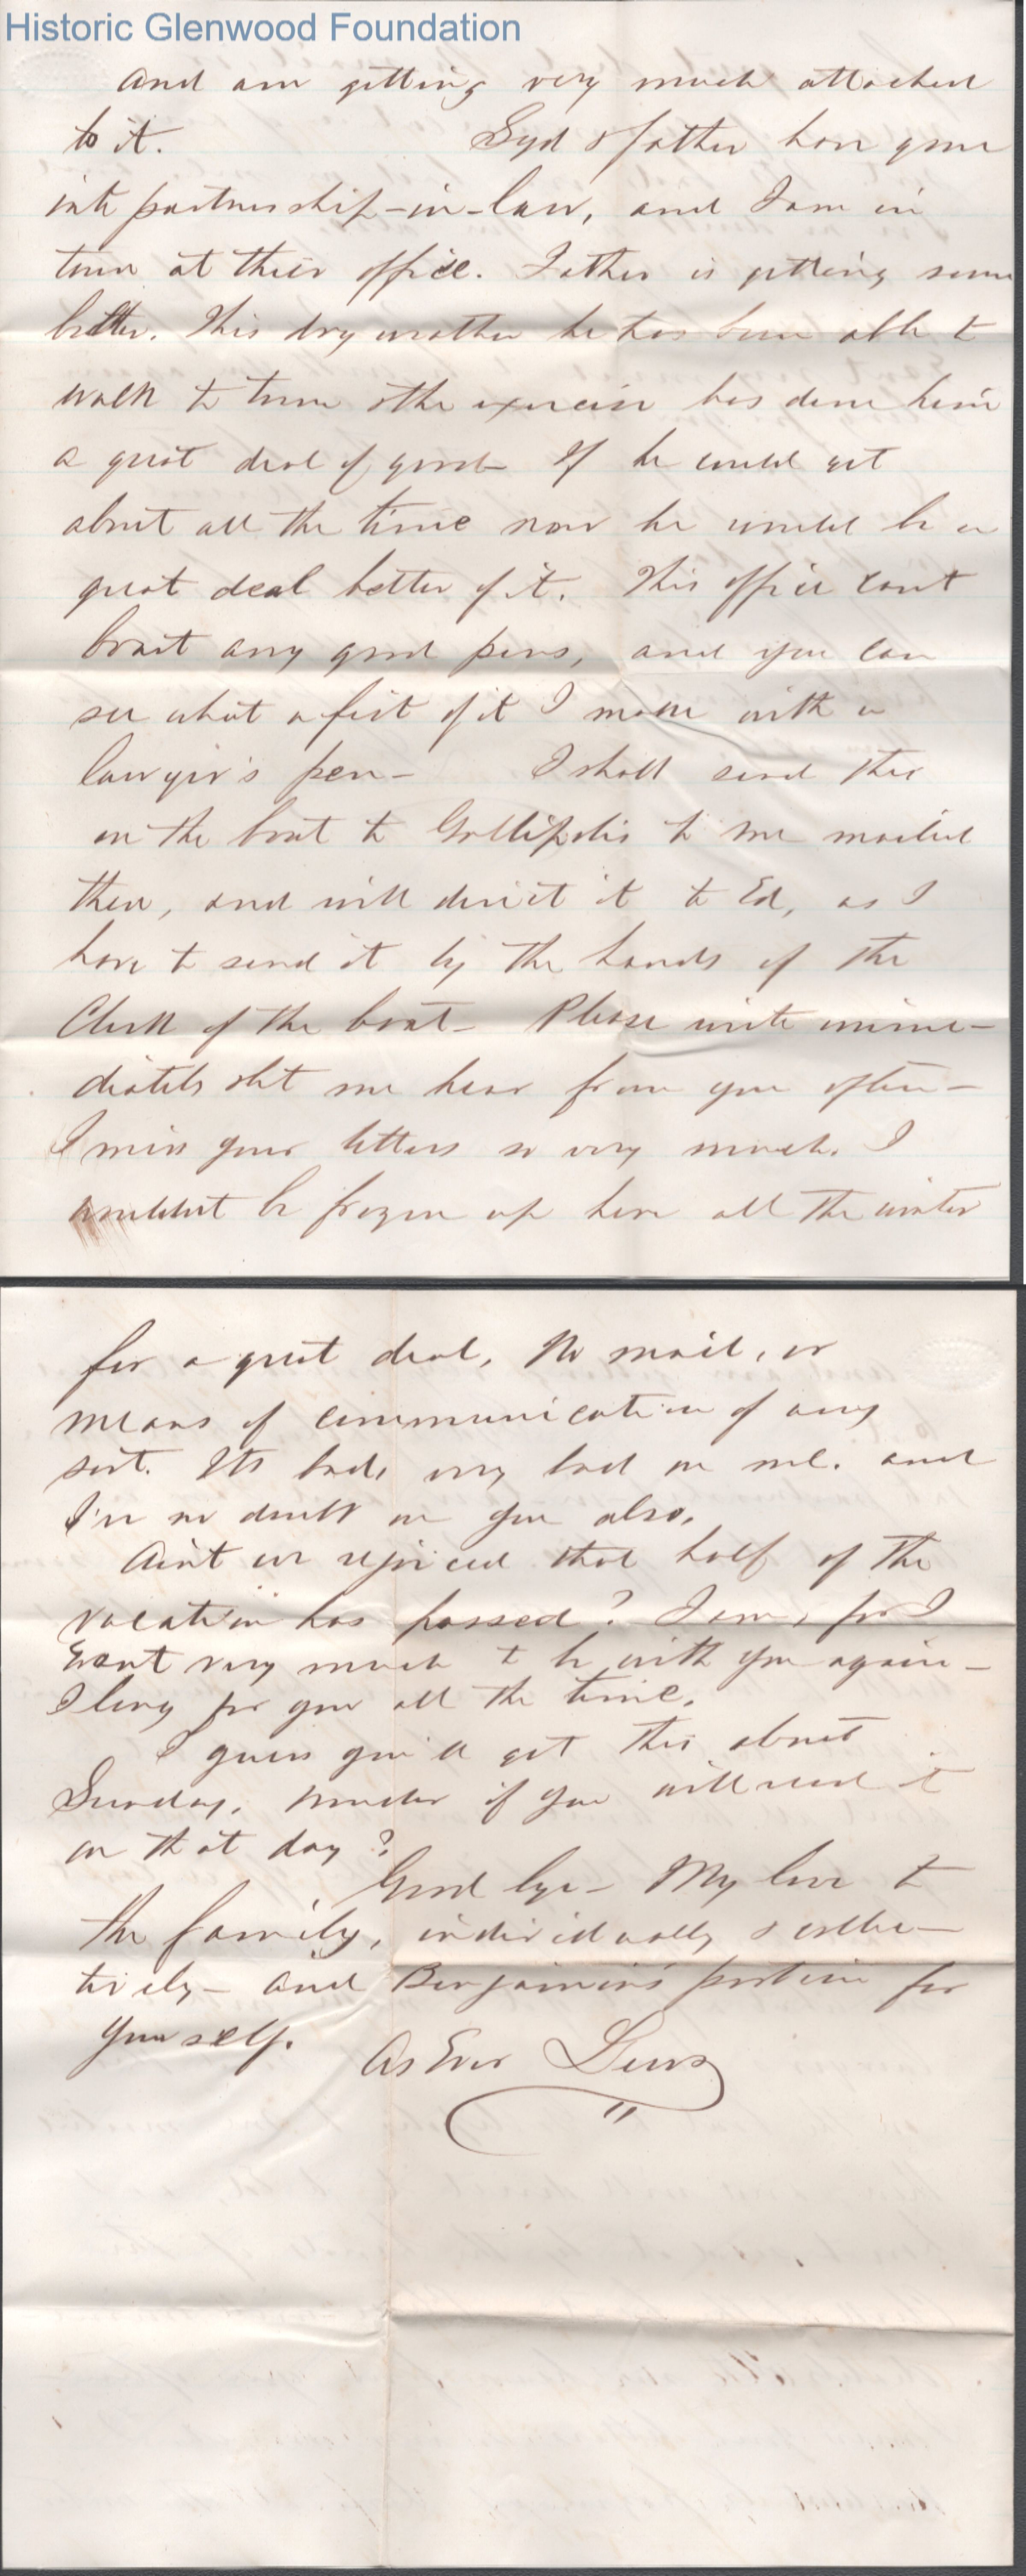 Historic Glenwood Foundation
And am getting very much attached
to it. Syd & father have gone
into partnership-in-law, and I am in
town at their office. Father is getting some
better. This dry weather he has been able to
walk to town & the exercise has done him
a great deal of good— If he could get
about all the time now he would be a
great deal better of it. This office cant
boast any good pens, and you can
see what a fist of it I make with a
lawyer's pen— I shall send this
on the boat to Gallipolis to be mailed
then, and will direct it to Ed, as I
have to send it by the hands of the
Clerk of the boat— Please write imme-
diately & let me hear from you often—
I miss your letters so very much. I
wouldnt be frozen up here all the winter
for a great deal, No mail, or
means of communication of any
sort. Its bad, very bad on me. and
I've no doubt on you also.
Aint we rejoiced that half of the
vacation has passed? I am, for I
want very much to be with you again—
I long for you all the time.
I guess you'll get this about
Sunday, wonder if you will read it
on that day?
Good bye— My love to
the family, individually & collec-
tively— and Benjamin's portion for
yourself.
As Ever Lewis